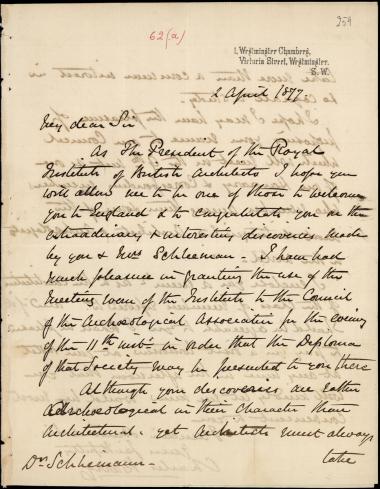 62(a)
254
1, Westminster Chambers,
Victoria Street, Westminster.
S.W.
2 April 1877
My dear Sir
As The President of the Royal
Institute of British Architects I hope you
will allow me to be one of those to welcome
you to England & to congratulate you on the
extraordinary & interesting discoveries made
by you & Mrs Schliemann - I have had
much pleasure in granting the use of the
meeting room of the Institute to the Council
of the Archaeological Association for the evening
of the 11th inst- in order that the Diploma
of that Society may be presented to you there
Although your discoveries are rather
Archaeological in their character than
Architectural - yet Architects must always
take
Dr Schliemann -